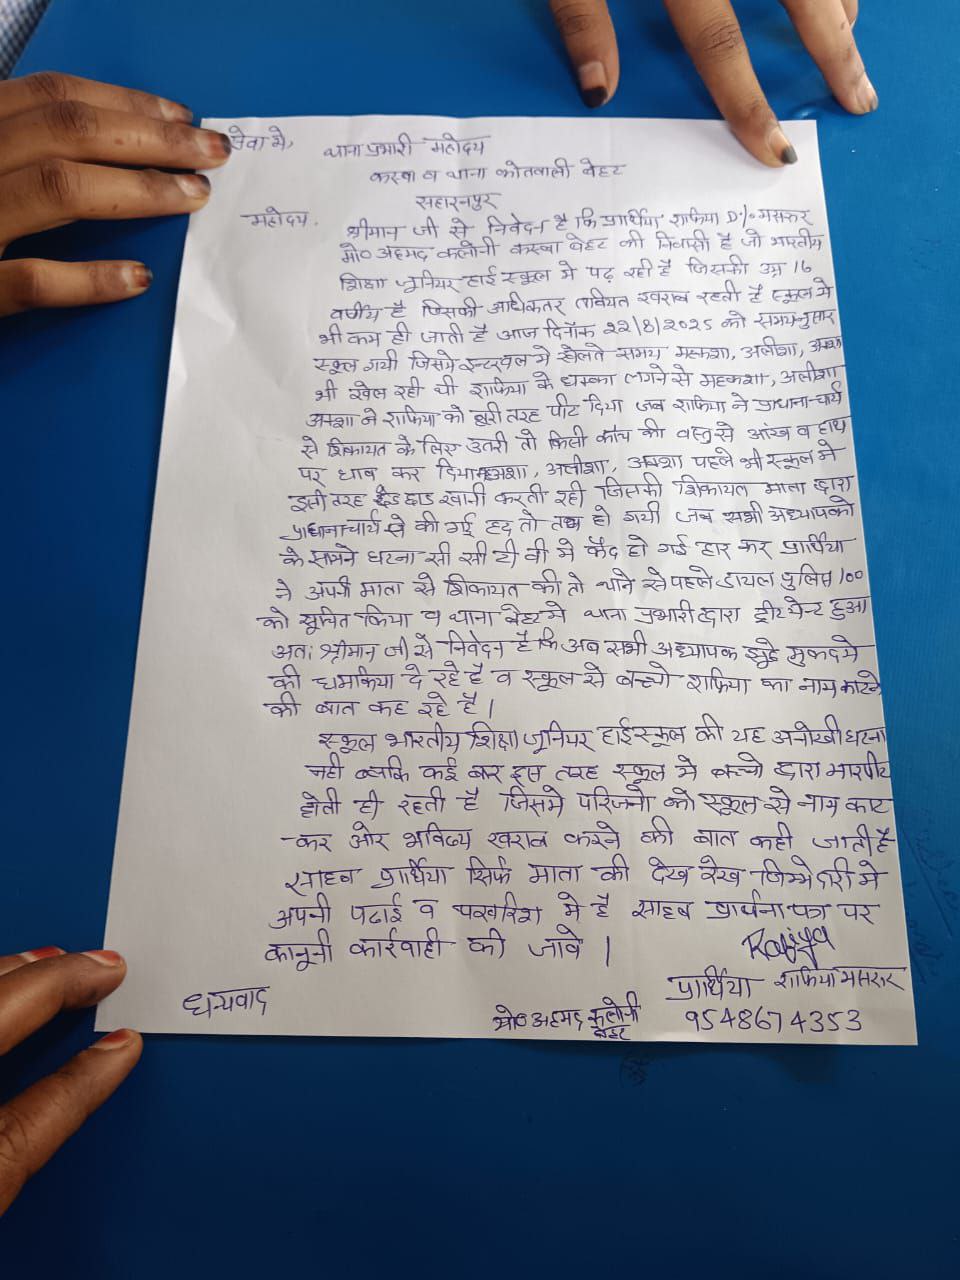 सेवा मे,
थाना प्रभारी महोदय
कस्बा व थाना कोतवाली बेहट
सहारनपुर
महोदय.
श्रीमान जी से निवेदन है कि प्रार्थिया राफिया D/o मसरूर
मो० अहमद कलोनी कस्बा बेहट की निवासी है जो भारतीय
शिक्षा जूनियर हाई स्कूल मे पढ़ रही है जिसकी उम्र 16
वर्षीय है जिसकी अधिकतर तबियत खराब रहती है स्कूल मे
भी कम ही जाती है आज दिनाँक 22/8/2025 को समयनुसार
स्कूल गयी जिसमे इन्टरवल मे खेलते समय महकशा, अलीशा, अक्शा
भी खेल रही थी राफिया के धक्का लगने से महकशा, अलीशा
अक्शा ने राफिया को बुरी तरह पीट दिया जब राफिया ने प्राधाना-चार्य
से शिकायत के लिए उतरी तो किसी काँच की वस्तु से आंख व हाथ
पर घाव कर दिया महकशा, अलीशा, अक्शा पहले भी स्कूल मे
इसी तरह छेड छाड खानी करती रही जिसकी शिकायत माता द्वारा
प्राधानाचार्य से की गई हद तो तब हो गयी जब सभी अध्यापको
के सामने घटना सी सी टी वी मे कैद हो गई हार कर प्रार्थिया
ने अपनी माता से शिकायत की तो थाने से पहले डायल पुलिस 100
को सूचित किया व थाना बेहट मे थाना प्रभारी द्वारा ट्रीटमेन्ट हुआ
अतः श्रीमान जी से निवेदन है कि अब सभी अध्यापक झूठे मुकदमे
की धमकिया दे रहे है व स्कूल से बच्चो राफिया का नाम काटने
की बात कह रहे है।
स्कूल भारतीय शिक्षा जूनियर हाईस्कूल की यह अनोखी घटना
नही बल्कि कई बार इस तरह स्कूल मे बच्चो द्वारा मारपीट
होती ही रहती है जिसमे परिजनो को स्कूल से नाम काट
-कर ओर भविष्य खराब करने की बात कही जाती है
साहब प्रार्थिया सिर्फ माता की देख रेख जिम्मेदारी मे
अपनी पढाई व परवरिश मे है साहब प्रार्थना पत्र पर
कानूनी कार्रवाही की जावे।
Rafiya
प्रार्थिया राफिया मसरूर
धन्यवाद
मो० अहमद कलोनी
बेहट
9548674353